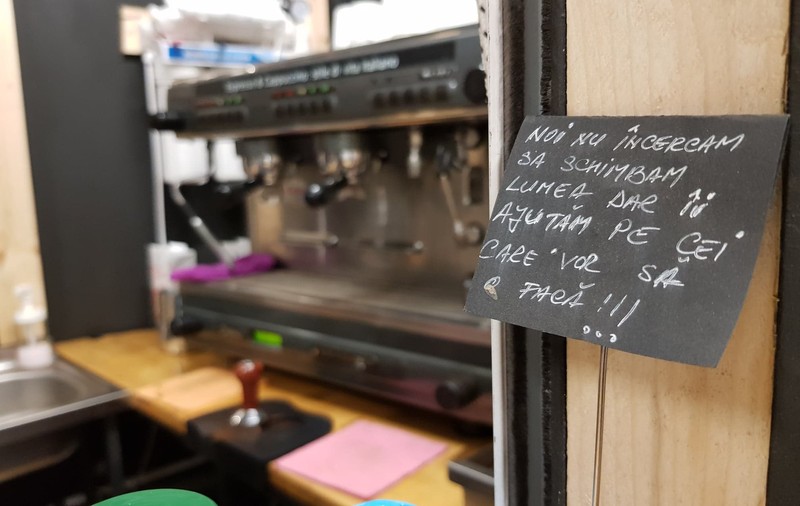 NOI NU ÎNCERCAM
SA SCHIMBAM
LUMEA DAR ÎI
AJUTĂM PE CEI
CARE VOR SĂ
O FACĂ !!!
...